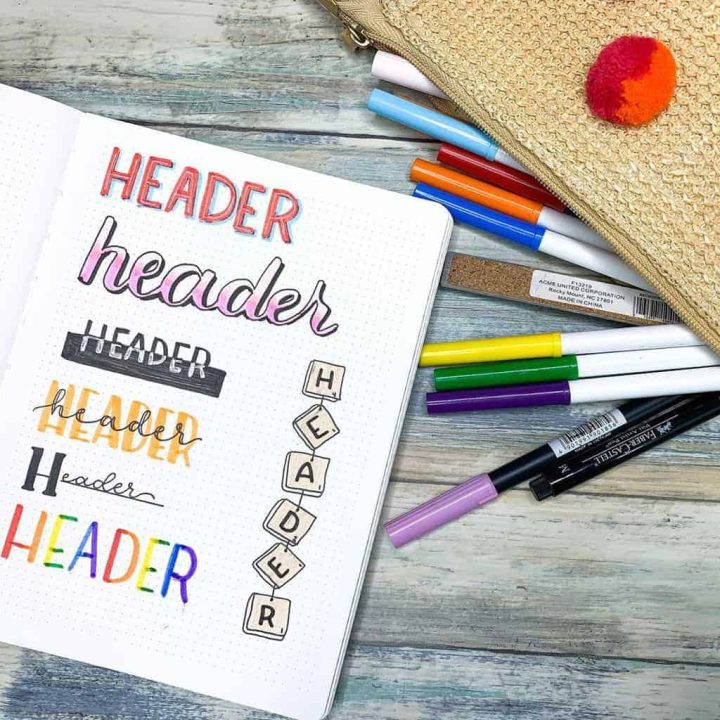 HEADER
header
HEADER
HEADER
header
Header
HEADER
HEADER
F13219
ACME UNITED CORPORATION
Rocky Mount, NC 27801
MADE IN CHINA
FABER-CASTELL
M